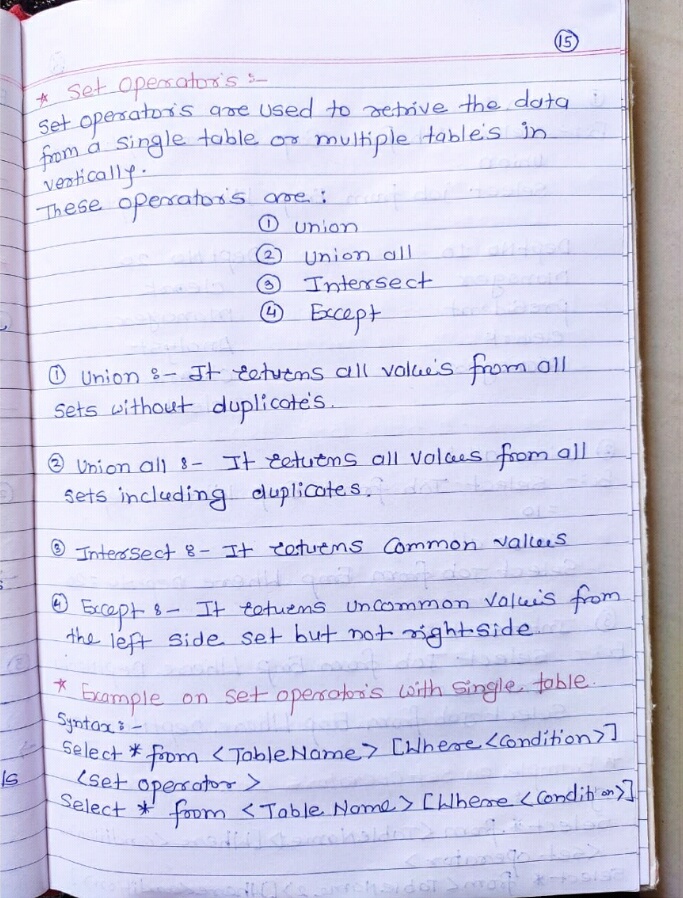 15
* Set Operator's :-
Set operator's are used to retrive the data
from a single table or multiple table's in
vertically.
These operator's are :
① Union
② Union all
③ Intersect
④ Except
① Union :- It returns all value's from all
sets without duplicate's.
② Union all :- It returns all values from all
sets including duplicates.
③ Intersect :- It returns Common values
④ Except :- It returns uncommon value's from
the left side set but not rightside
* Example on set operator's with single table.
Syntax :-
Select * from <TableName> [Where <Condition>]
<set operator>
Select * from <Table Name> [Where <Condition>]